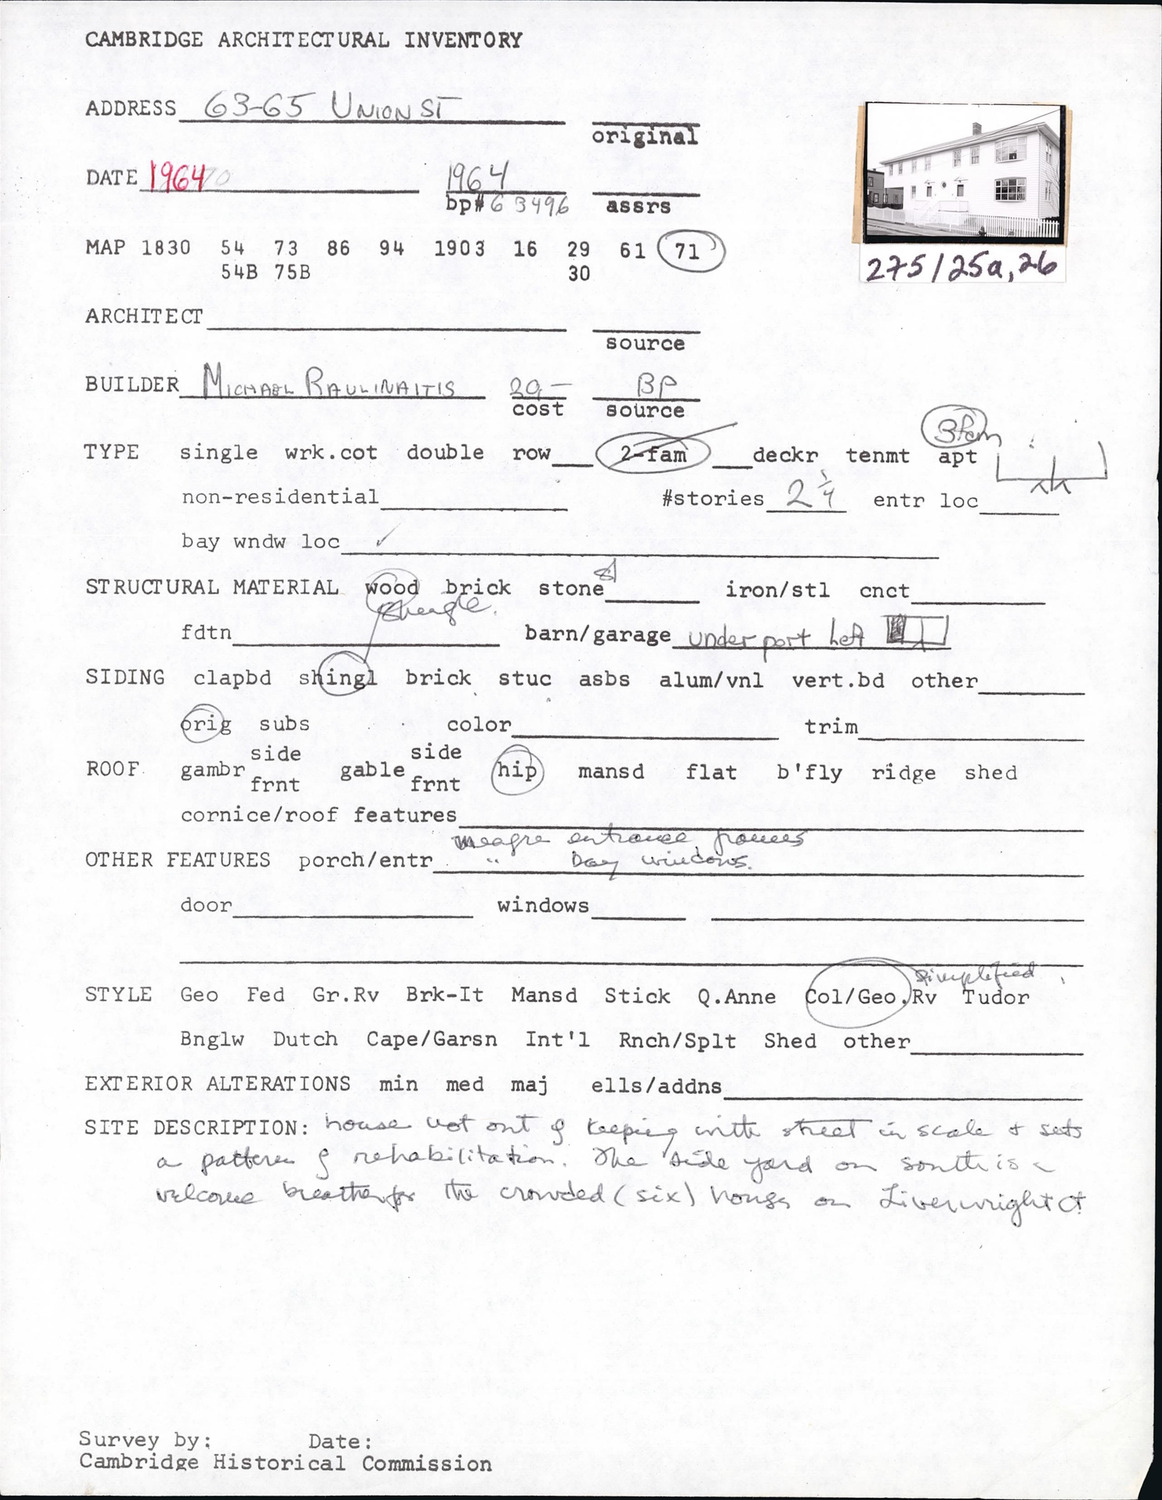 CAMBRIDGE ARCHITECTURAL INVENTORY
ADDRESS 63-65 UNION ST
original
DATE 1964 1964
bp# 63496 assrs
MAP 1830 54 73 86 94 1903 16 29 61 71
54B 75B 30
275/25a,26
ARCHITECT
source
BUILDER MICHAEL RAULINAITIS 20,- BP
cost source
3fam
TYPE single wrk.cot double row 2-fam deckr tenmt apt
non-residential #stories 2 1/4 entr loc
bay wndw loc ✓
STRUCTURAL MATERIAL wood brick stone iron/stl cnct
shingle.
fdtn barn/garage under port left
SIDING clapbd shingl brick stuc asbs alum/vnl vert.bd other
orig subs color trim
side side
ROOF gambr gable hip mansd flat b'fly ridge shed
frnt frnt
cornice/roof features
meagre entrance frames
OTHER FEATURES porch/entr " bay windows.
door windows
simplified
STYLE Geo Fed Gr.Rv Brk-It Mansd Stick Q.Anne Col/Geo.Rv Tudor
Bnglw Dutch Cape/Garsn Int'l Rnch/Splt Shed other
EXTERIOR ALTERATIONS min med maj ells/addns
SITE DESCRIPTION: house not out of keeping with street in scale & sets
a pattern of rehabilitation. The side yard on south is a
welcome breather for the crowded (six) houses on Liverwright Ct
Survey by: Date:
Cambridge Historical Commission